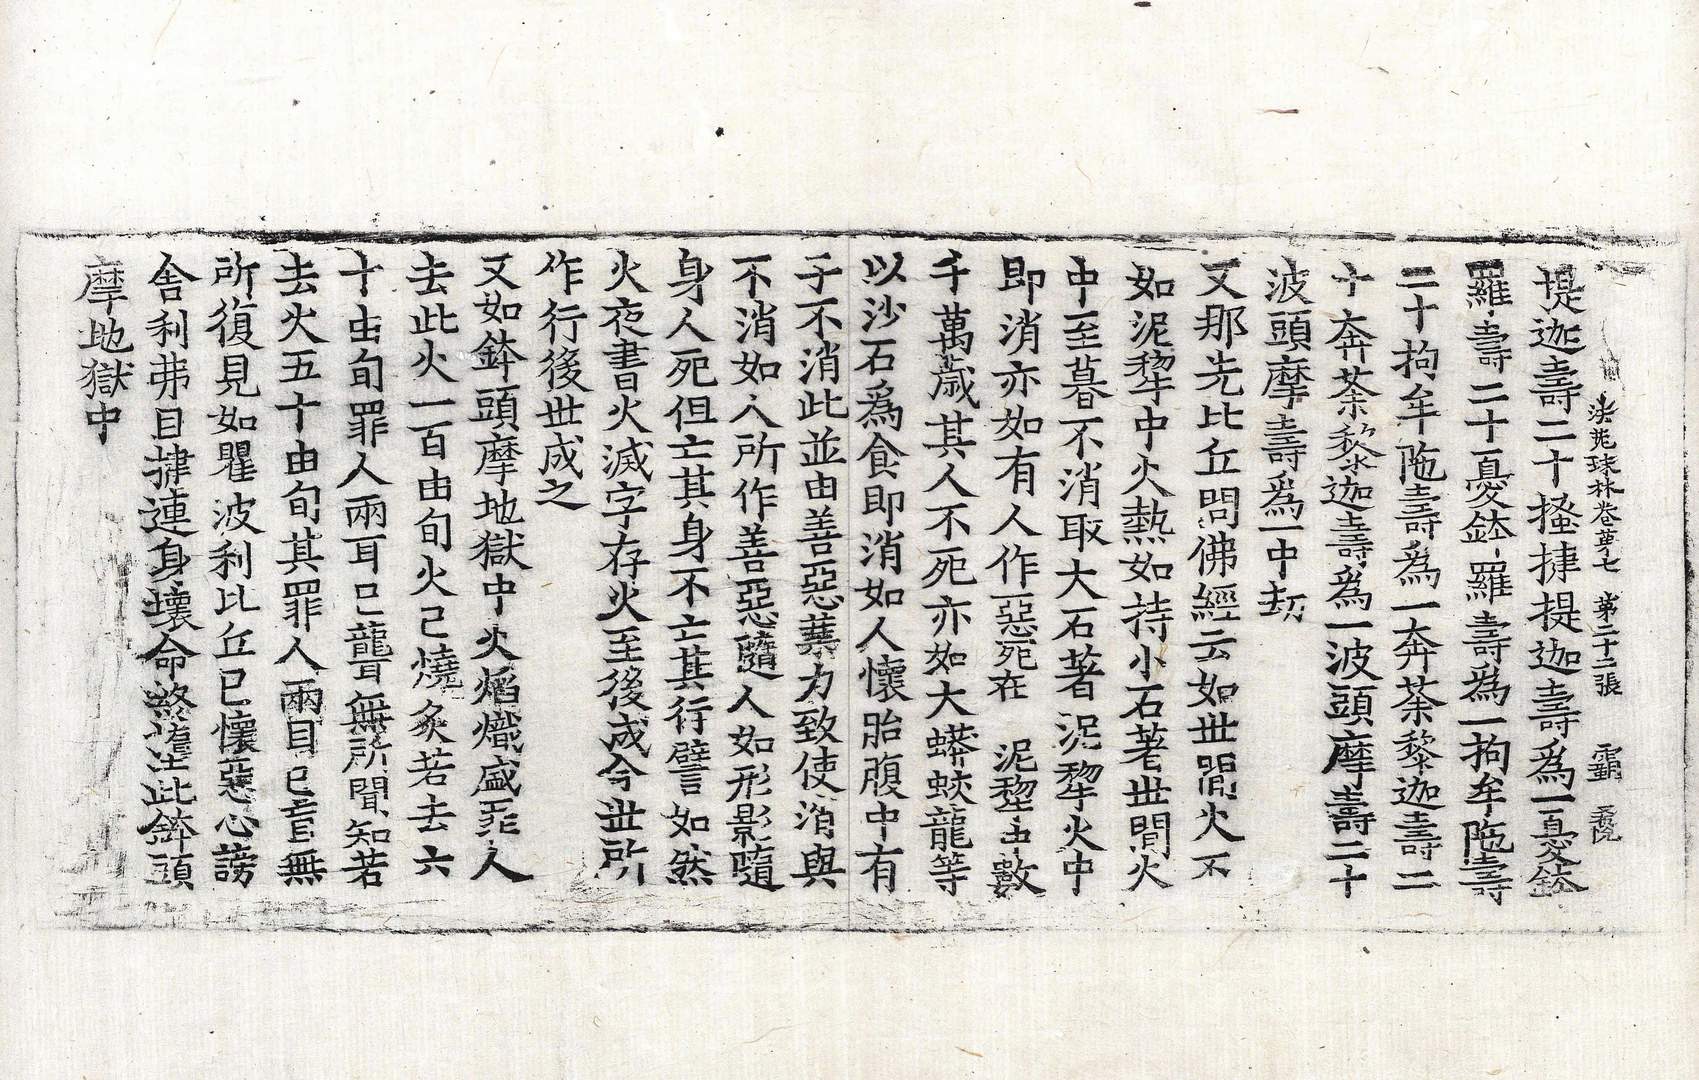 法苑珠林卷第七　第二十二張　覇
提迦壽二十搔揵提迦壽爲一憂鉢
羅壽二十憂鉢羅壽爲一拘牟陁壽
二十拘牟陁壽爲一奔荼黎迦壽二
十奔荼黎迦壽爲一波頭摩壽二十
波頭摩壽爲一中劫
又那先比丘問佛經云如世間火不
如泥犂中火熱如持小石著世間火
中至暮不消取大石著泥犂火中
即消亦如有人作惡死在　泥犂中數
千萬歲其人不死亦如大蟒蛟龍等
以沙石爲食即消如人懷胎腹中有
子不消此並由善惡業力致使消與
不消如人所作善惡隨人如形影隨
身人死但亡其身不亡其行譬如然
火夜書火滅字存火至後成今世所
作行後世成之
又如鉢頭摩地獄中火焰熾盛罪人
去此火一百由旬火已燒炙若去六
十由旬罪人兩耳已聾無所聞知若
去火五十由旬其罪人兩目已盲無
所復見如瞿波利比丘已懷惡心謗
舍利弗目揵連身壞命終墮此鉢頭
摩地獄中